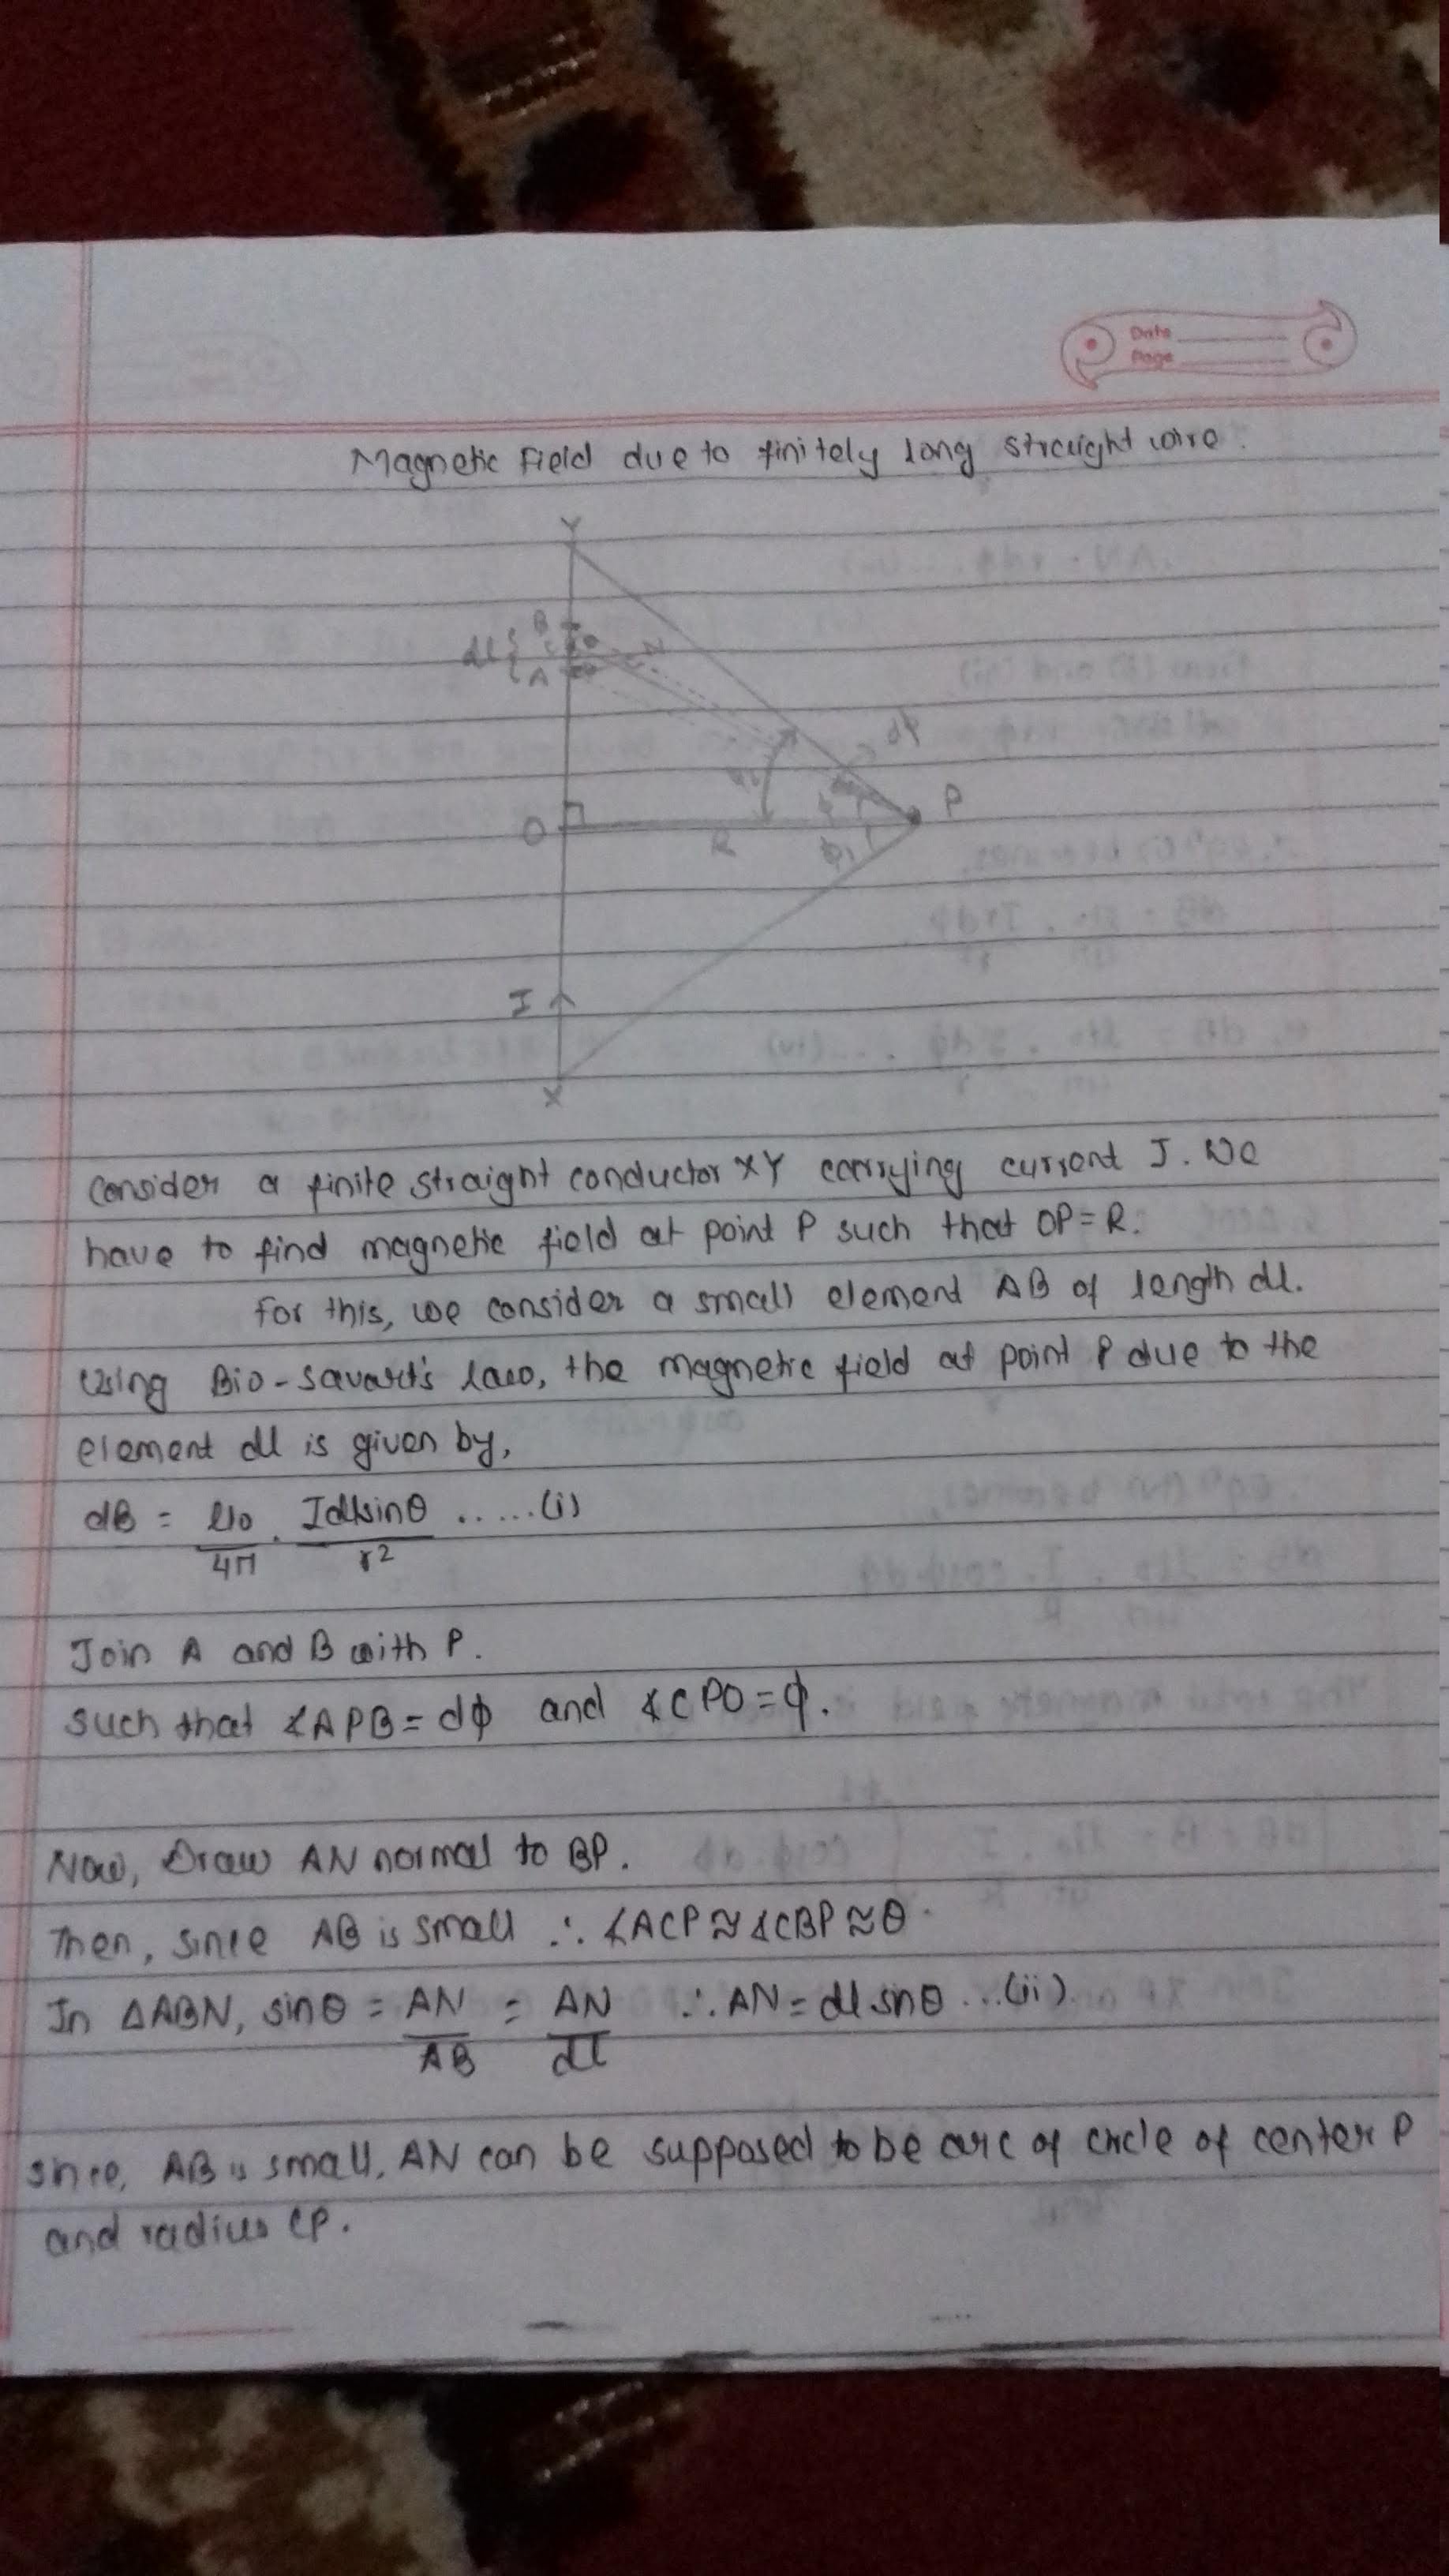 Date
Page
Magnetic Field due to finitely long straight wire.
Y
B
dl
A
N
dφ
P
O
R
φ1
I
X
Consider a finite straight conductor XY carrying current I. We
have to find magnetic field at point P such that OP=R.
For this, we consider a small element AB of length dl.
Using Bio-savart's law, the magnetic field at point P due to the
element dl is given by,
dB = μ0/4π . Idlsinθ/r² ......(i)
Join A and B with P.
such that ∠APB=dφ and ∠CPO=φ.
Now, Draw AN normal to BP.
Then, since AB is small ∴ ∠ACP≈∠CBP≈θ
In ΔABN, sinθ = AN/AB = AN/dl ∴ AN=dl sinθ ...(ii)
Since, AB is small, AN can be supposed to be arc of circle of center P
and radius CP.